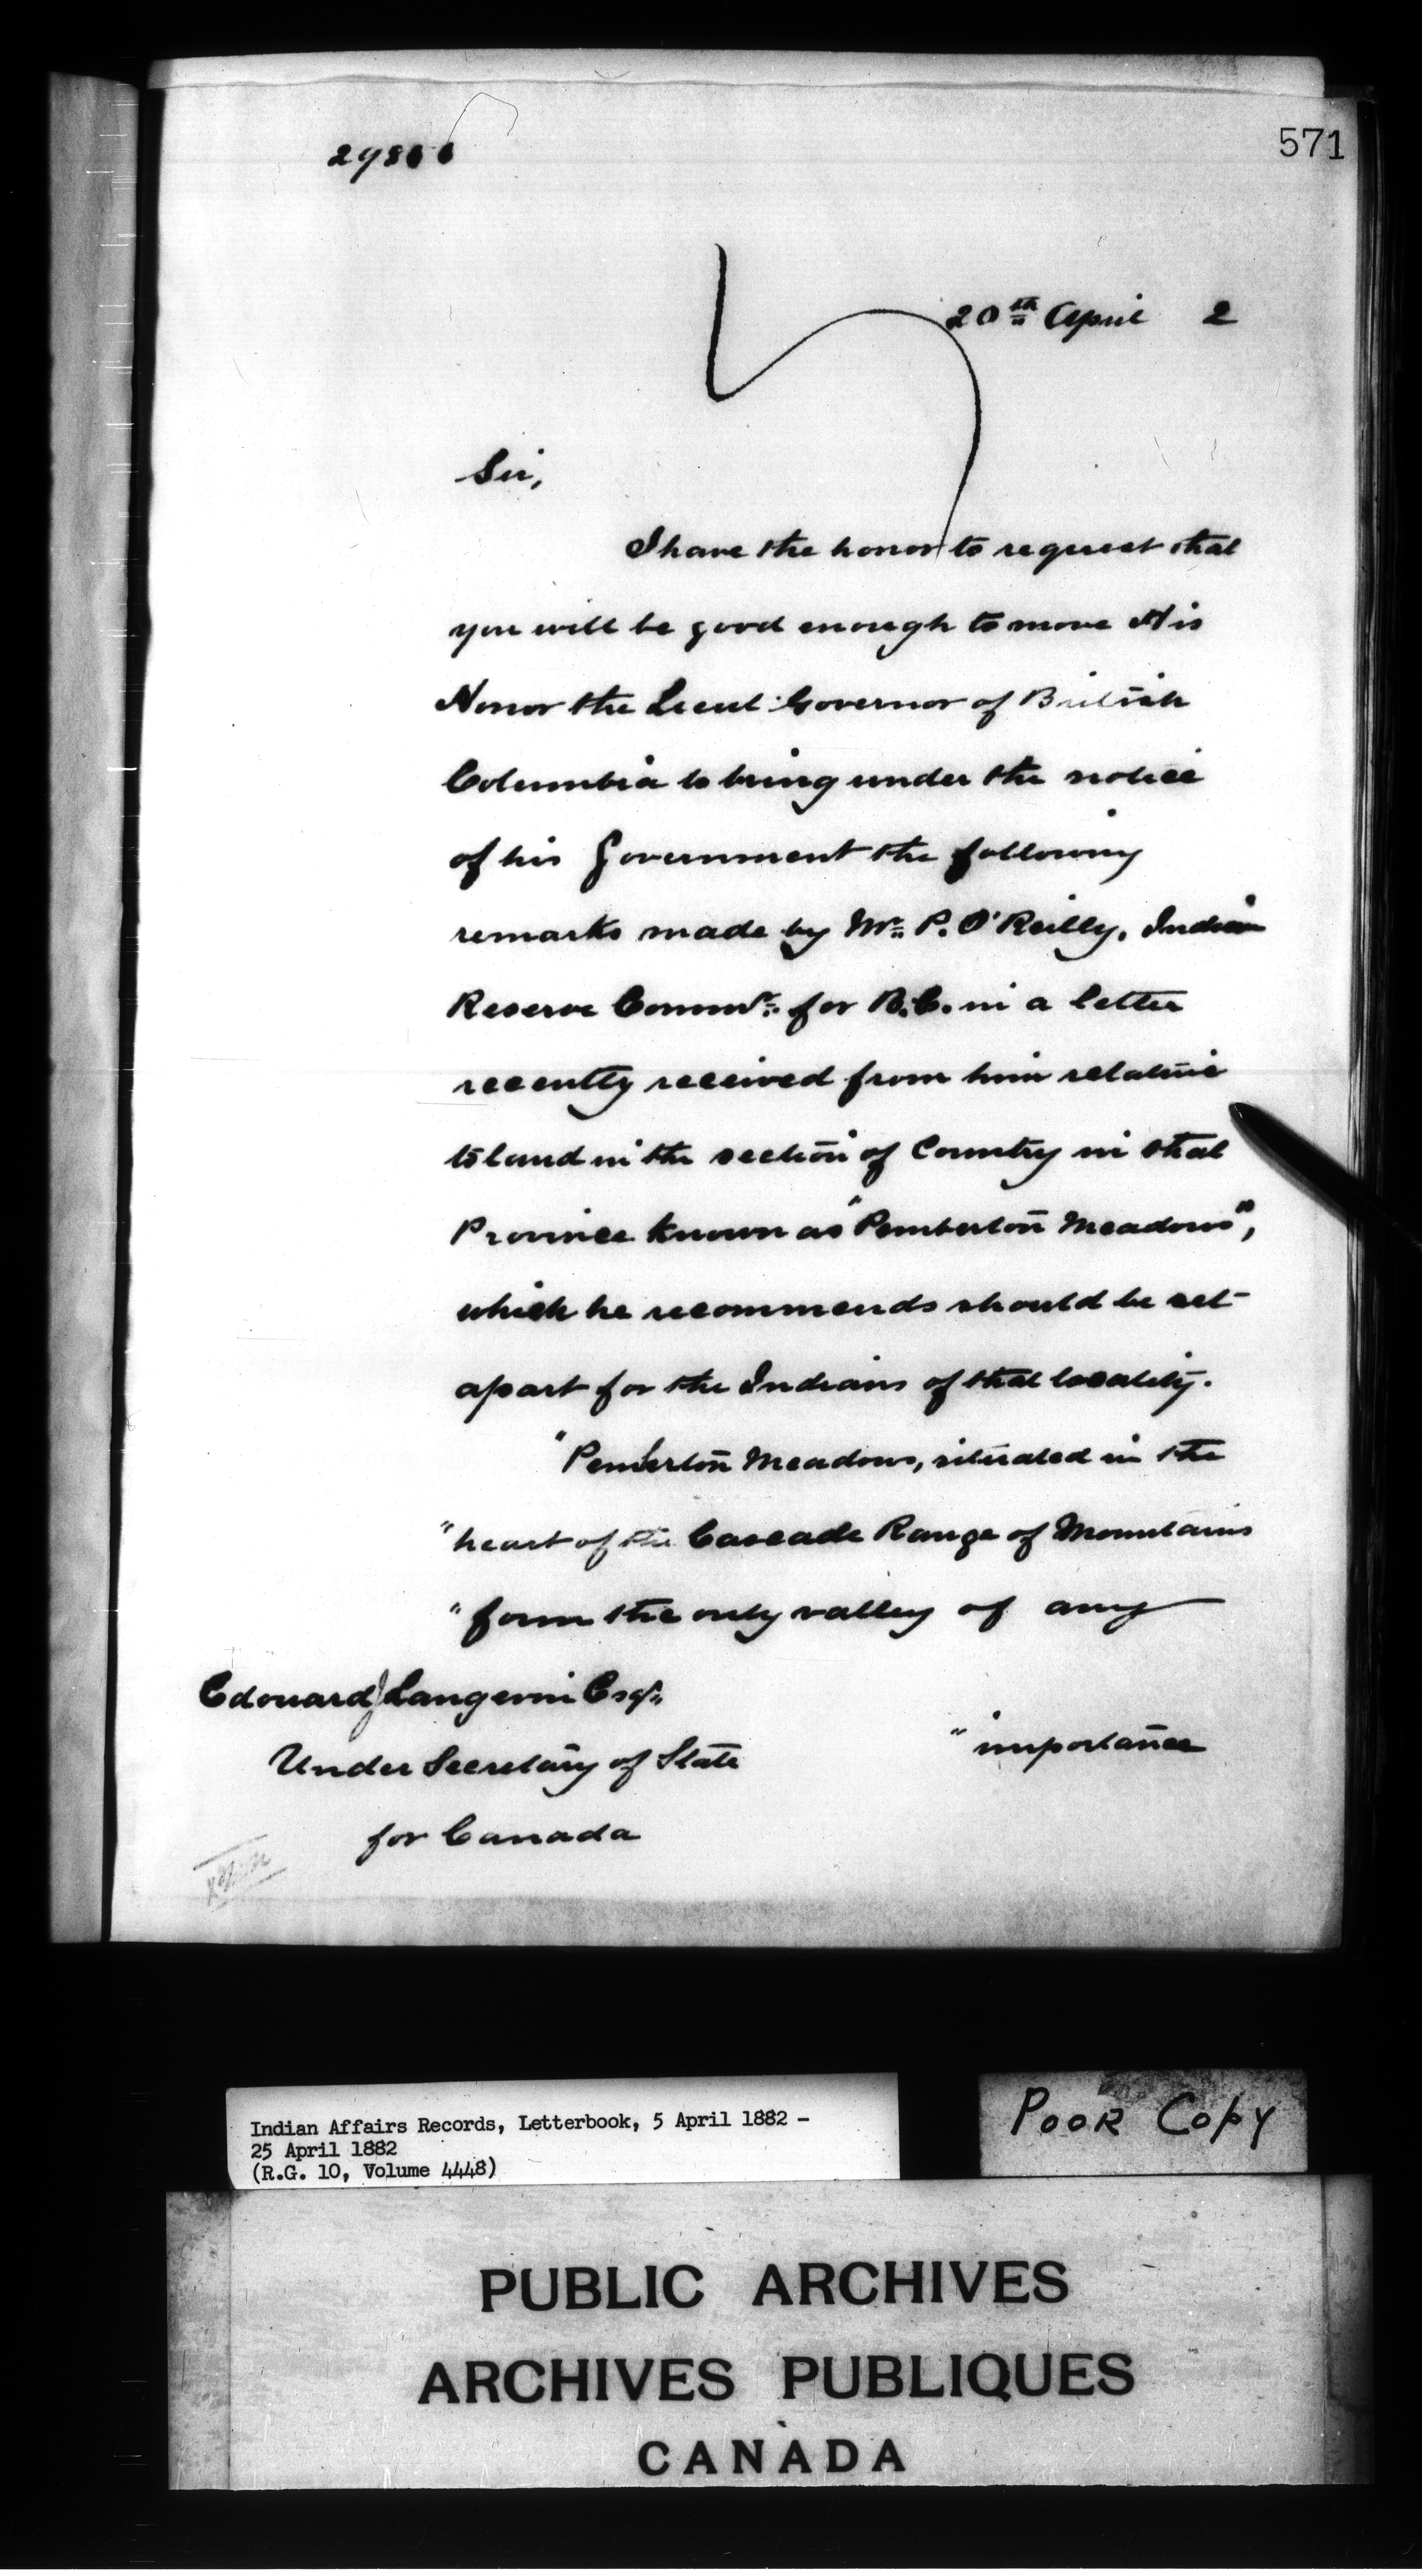 571
20th April 2
Sir,
I have the honor to request that
you will be good enough to move His
Honor the Lieut Governor of British
Columbia to bring under the notice
of his Government the following
remarks made by Mr. P. O'Reilly, Indian
Reserve Commr. for B.C. in a letter
recently received from him relative
to land in the section of Country in that
Province known as "Pemberton Meadows",
which he recommends should be set
apart for the Indians of that locality.
"Pemberton Meadows, situated in the
"heart of the Cascade Range of Mountains
"form the only valley of any
Edouard J Langevin Esqr.
"importance
Under Secretary of State
for Canada
Indian Affairs Records, Letterbook, 5 April 1882 -
25 April 1882
(R.G. 10, Volume 4448)
Poor Copy
PUBLIC ARCHIVES
ARCHIVES PUBLIQUES
CANADA